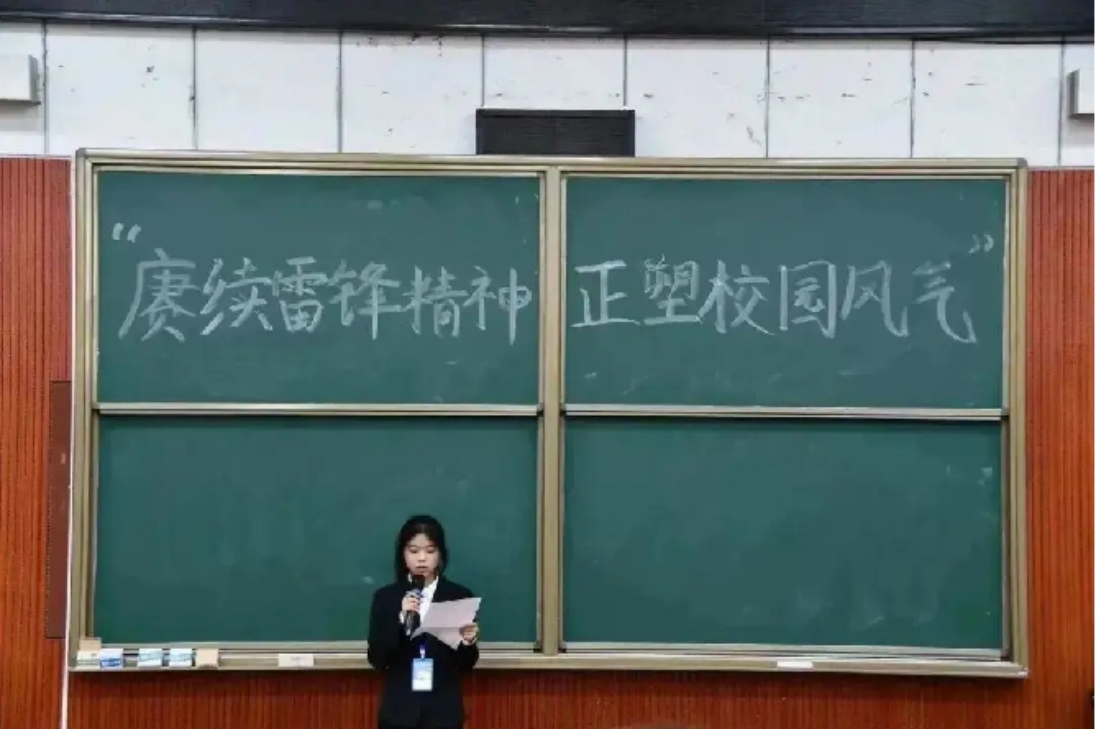 “赓续雷锋精神 正塑校园风气”